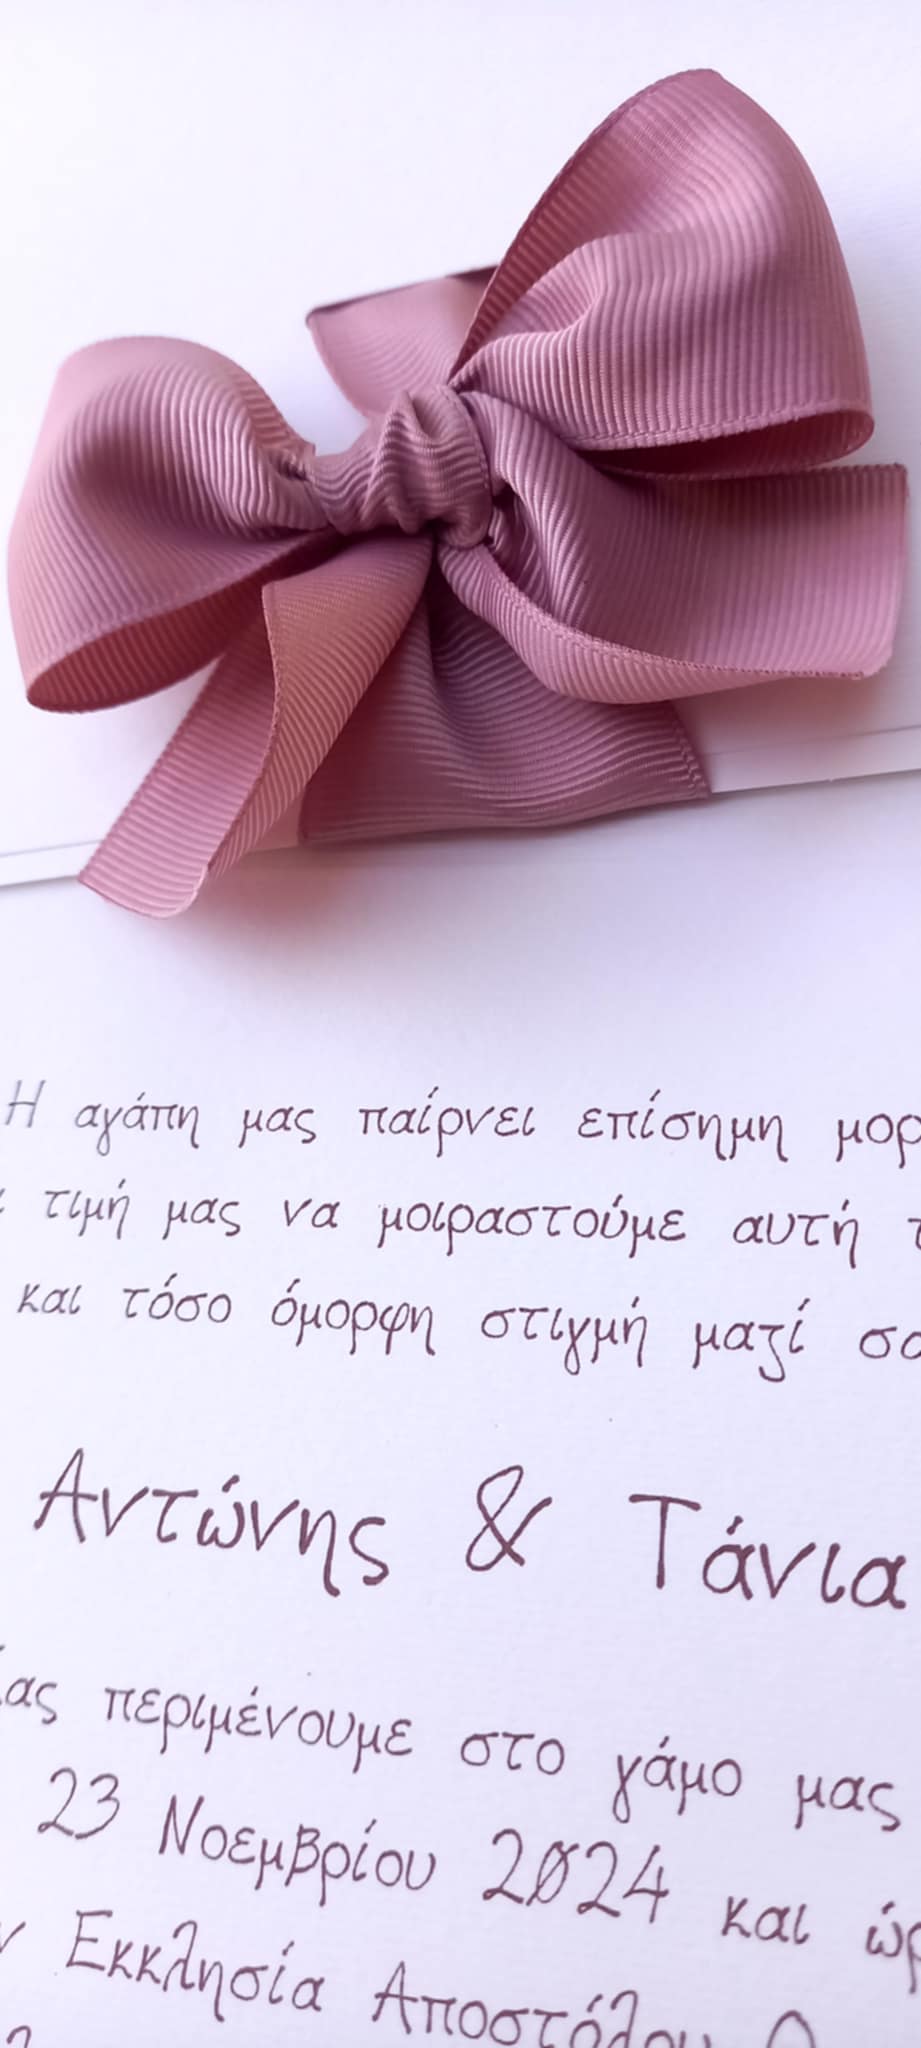 Η αγάπη μας παίρνει επίσημη
τιμή μας να μοιραστούμε αυτή
και τόσο όμορφη στιγμή μαζί
Αντώνης & Τάνια
περιμένουμε στο γάμο μας
23 Νοεμβρίου 2024 και
Εκκλησία Αποστόλου